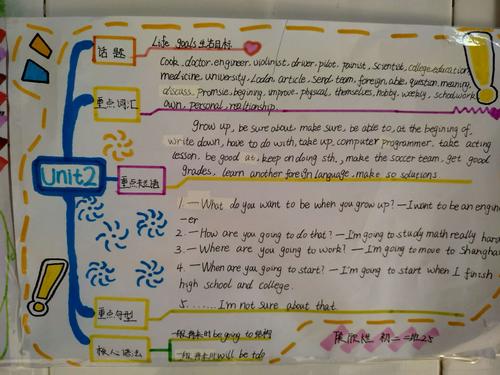 话题
Life goals 生活目标
Cook, doctor, engineer, violinist, driver, pilot, pianist, scientist, college, education,
medicine, university, London, article, send, team, foreign, able, question, meaning,
discuss, Promsie, begining, improve, physical, themselves, hobby, weekly, schoolwork
own, personal, realtionship.
重点词汇
Grow up, be sure about, make sure, be able to, at the begining of,
write down, have to do with, take up, computer programmer, take acting
lesson, be good at, keep on doing sth, make the soccer team, get good
grades, learn another foreign language, make so solutions
Unit2
重点短语
1. —What do you want to be when you grow up? —I want to be an engin
-er
2. —How are you going to do that? —I'm going to study math really hard
3. —Where are you going to work? —I'm going to move to Shanghai
4. —When are you going to start? —I'm going to start when I finish
high school and college.
5. ...... I'm not sure about that.
重点句型
一般将来时 be going to 结构
核心语法
一般将来时 will be to do
初二二班25